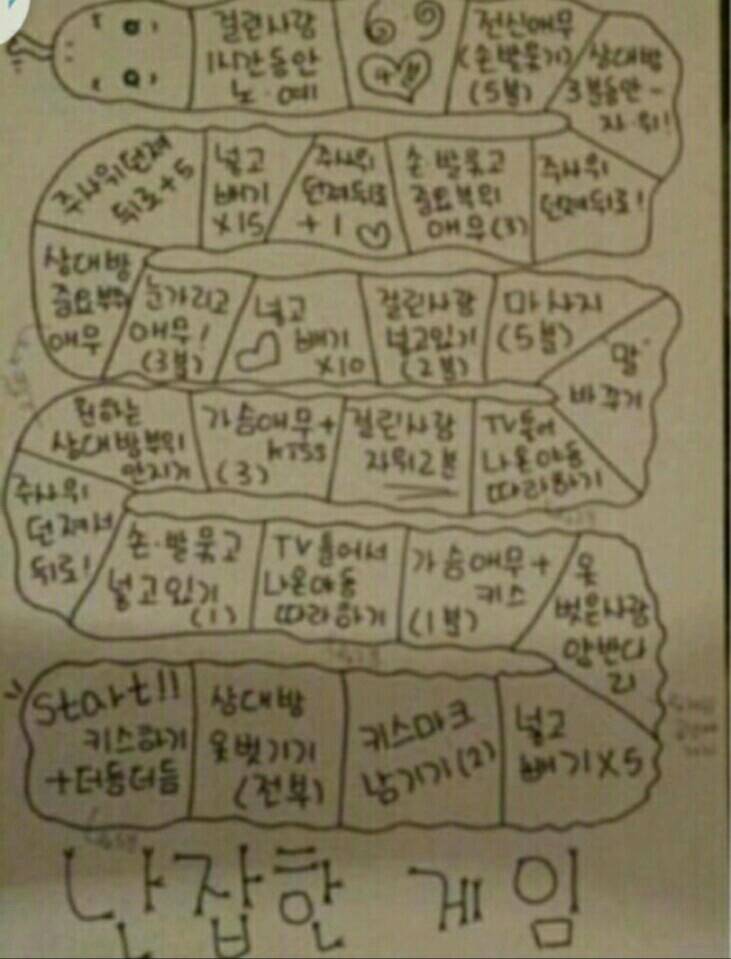 걸린사람
1시간동안
노·예
69
전신애무
(손발묶기)
(5분)
상대방
3분동안-
자·위!
주사위던져
뒤로+5
넣고
빼기
x15
주사위
던져뒤로
+1♡
손·발묶고
중요부위
애무(3)
주사위
던져뒤로!
상대방
중요부위
애무
눈가리고
애무!
(3분)
넣고
♡ 빼기
x10
걸린사람
넣고있기
(2분)
마사지
(5분)
"말"
바꾸기
원하는
상대방부위
만지기
가슴애무+
kiss
(3)
걸린사람
자위2분
TV틀어
나온야동
따라하기
주사위
던져서
뒤로!
손·발묶고
넣고있기
(1)
TV틀어서
나온야동
따라하기
가슴애무+
키스
(1분)
옷
벗은사람
start!!
키스하기
+더듬더듬
상대방
옷벗기기
(전부)
키스마크
남기기(2)
넣고
빼기x5
난잡한 게임